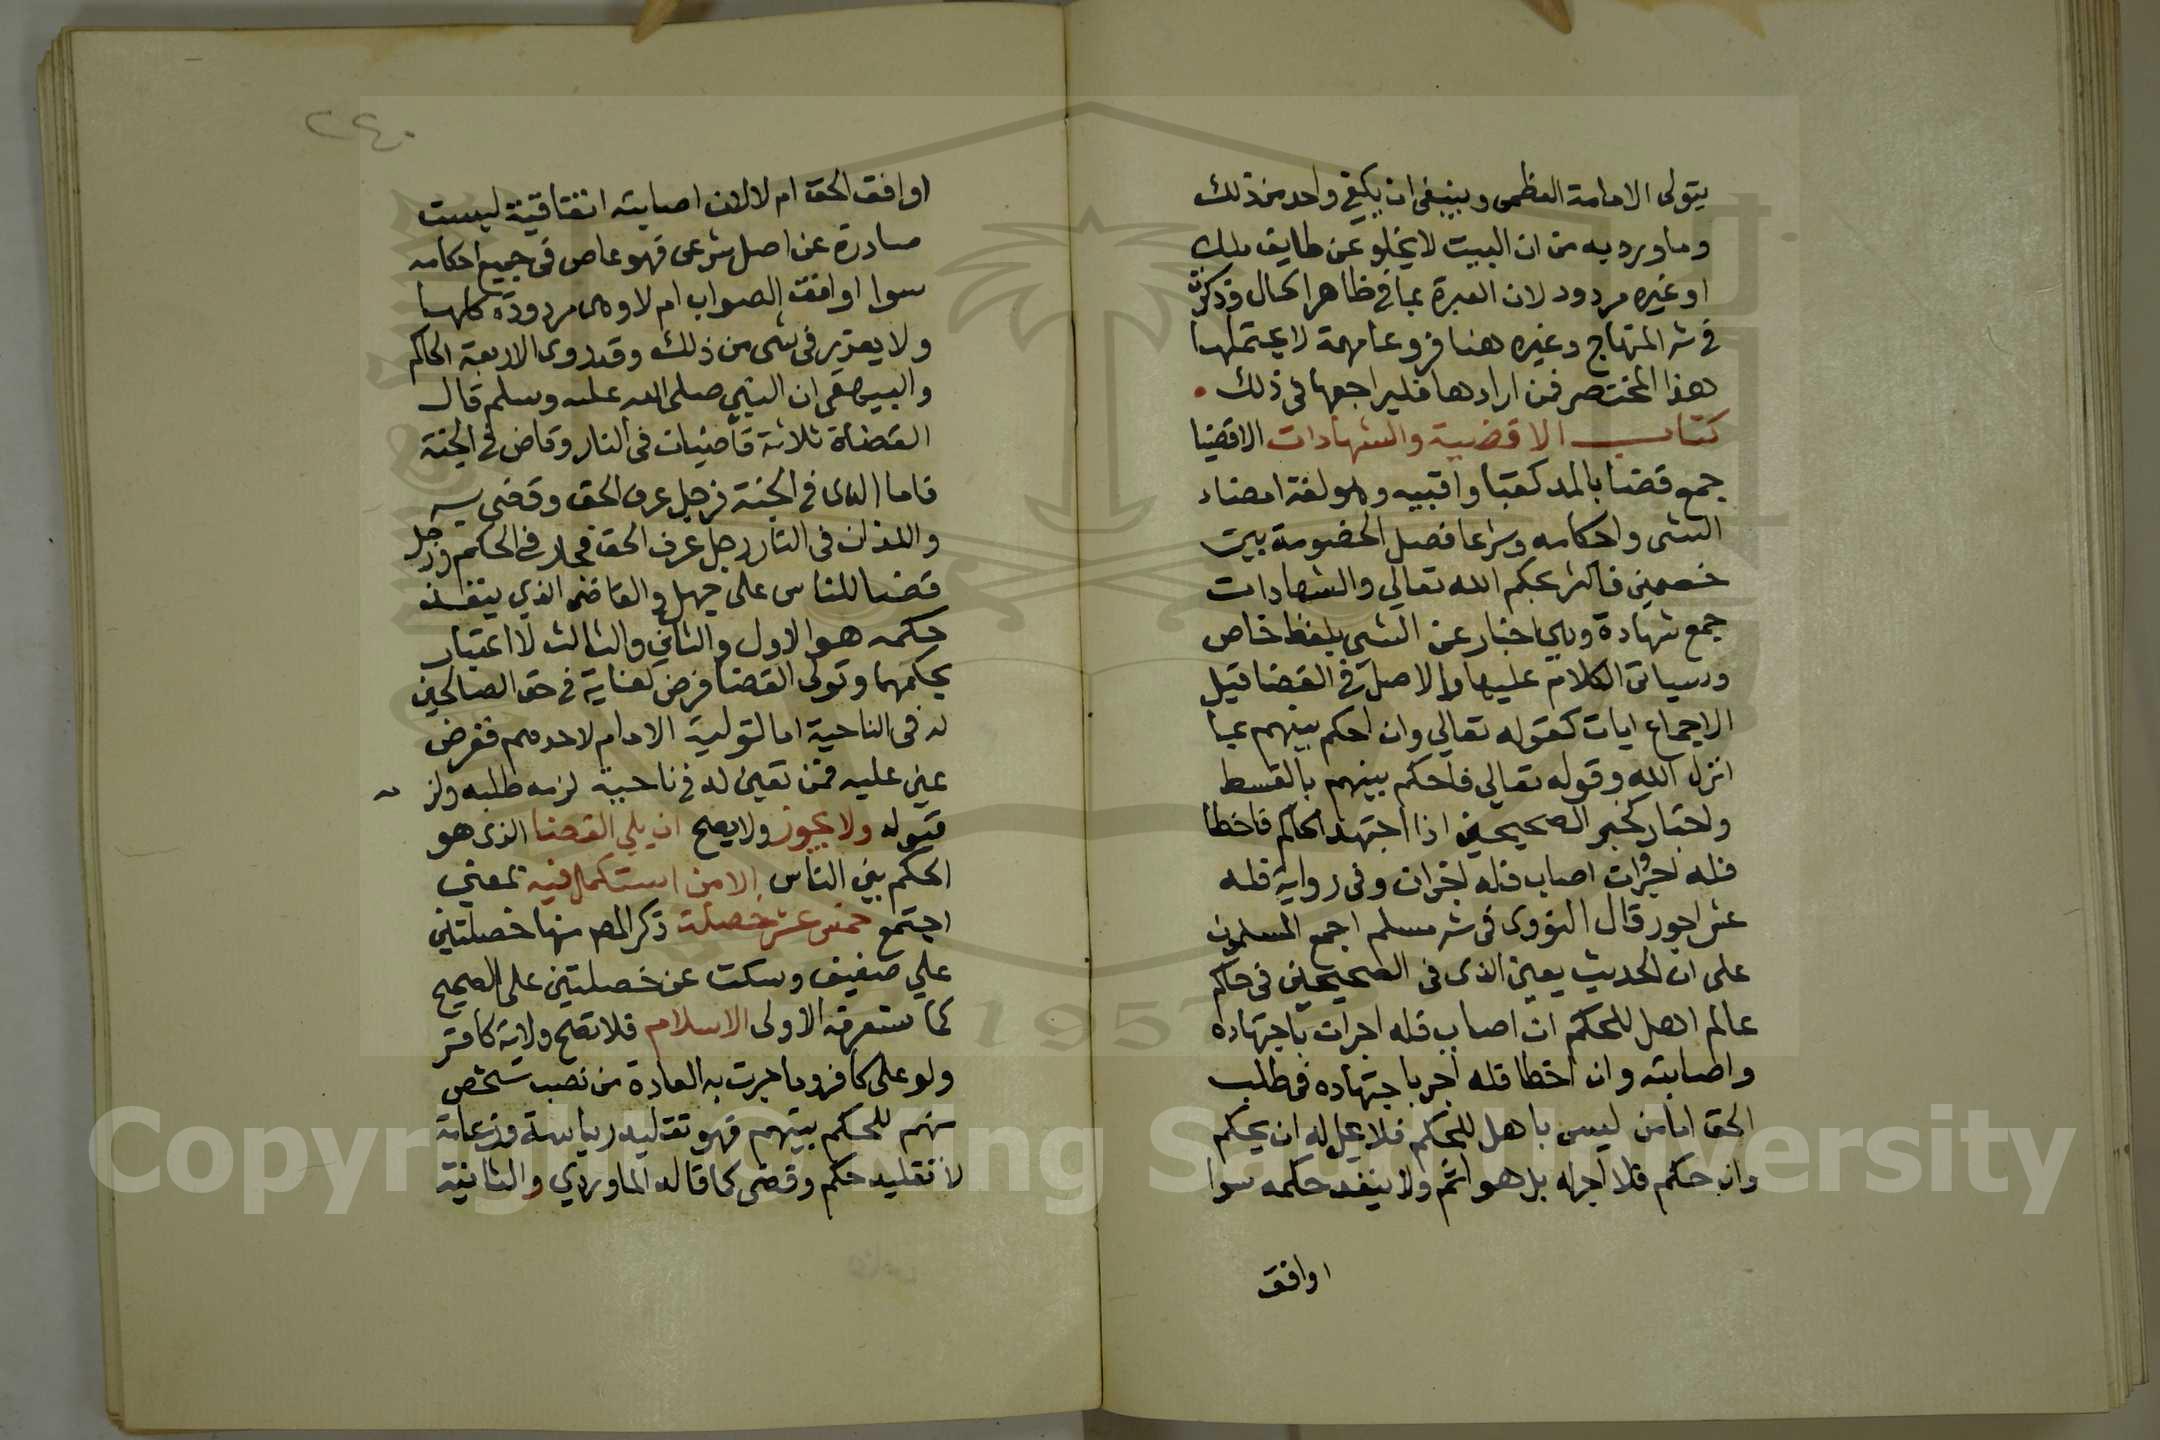 يتولى الامامة العظمى وينبغى ان يكفي واحد من ذلك
وما ورد به من ان البيت لا يخلو عن طايف ملك
او غيره مردود لان العبرة بما في ظاهر الحال وذكرت
في شر المنهاج وغيره هنا فروعا مهمة لا يحتملها
هذا المختصر فمن ارادها فليراجعها فى ذلك
كتاب الاقضية والشهادات الاقضيا
جمع قضا بالمد كقبا واقبيه وهو لغة امضاء
الشى واحكامه وشرعا فصل الخصومة بين
خصمين فاكثر بحكم الله تعالي والشهادات
جمع شهادة وهي اخبار عن الشى بلفظ خاص
وسياتى الكلام عليها والاصل في القضا قبل
الاجماع ايات كقوله تعالي وان احكم بينهم بما
انزل الله وقوله تعالي فاحكم بينهم بالقسط
واخبار كخبر الصحيحين اذا اجتهد الحاكم فاخطا
فله اجر وان اصاب فله اجران وفى رواية فله
عشر اجور قال النووى فى شر مسلم اجمع المسلمون
على ان الحديث يعين الذى فى الصحيحين فى حاكم
عالم اهل للحكم ان اصاب فله اجران باجتهاده
واصابته وان اخطا فله اجر باجتهاده فى طلب
الحق اما من ليس باهل للحكم فلا يحل له ان يحكم
وان حكم فلا اجر له بل هو اثم ولا ينفذ حكمه سوا
اوافق
٢٤٠
اوافق الحق ام لا لان اصابته اتفاقية ليست
صادرة عن اصل شرعى فهو عاص فى جميع احكامه
سوا اوافق الصواب ام لا وهى مردودة كلها
ولا يعذر فى شى من ذلك وقد روى الاربعة الحاكم
والبيهقى ان النبي صلى الله عليه وسلم قال
القضاة ثلاثة قاضيان فى النار وقاض في الجنة
فاما الذى في الجنة فرجل عرف الحق وقضى به
واللذان فى النار رجل عرف الحق فجار في الحكم ورجل
قضا للناس على جهل والقاضى الذي ينفذ
حكمه هو الاول والثاني والثالث لا اعتبار
بحكمهما وتولى القضا فرض كفاية في حق الصالحين
له فى الناحية اما لتولية الامام لاحدهم ففرض
عين عليه فمن تعين له في ناحية لزمه طلبه ولز
قبوله ولا يجوز ولا يصح ان يلي القضا الذى هو
الحكم بين الناس الا من استكمل فيه بمعني
اجتمع خمس عشر خصلة ذكر المص منها خصلتين
علي ضعيف وسكت عن خصلتين على الصحيح
كما ستعرفه الاولى الاسلام فلا تصح ولاية كافر
ولو على كافر وما جرت به العادة من نصب شخص
منهم للحكم بينهم فهو تقليد رياسة وزعامة
لا تقليد حكم وقضى كما قاله الماوردي والثانية
Copyright © King Saud University
1957